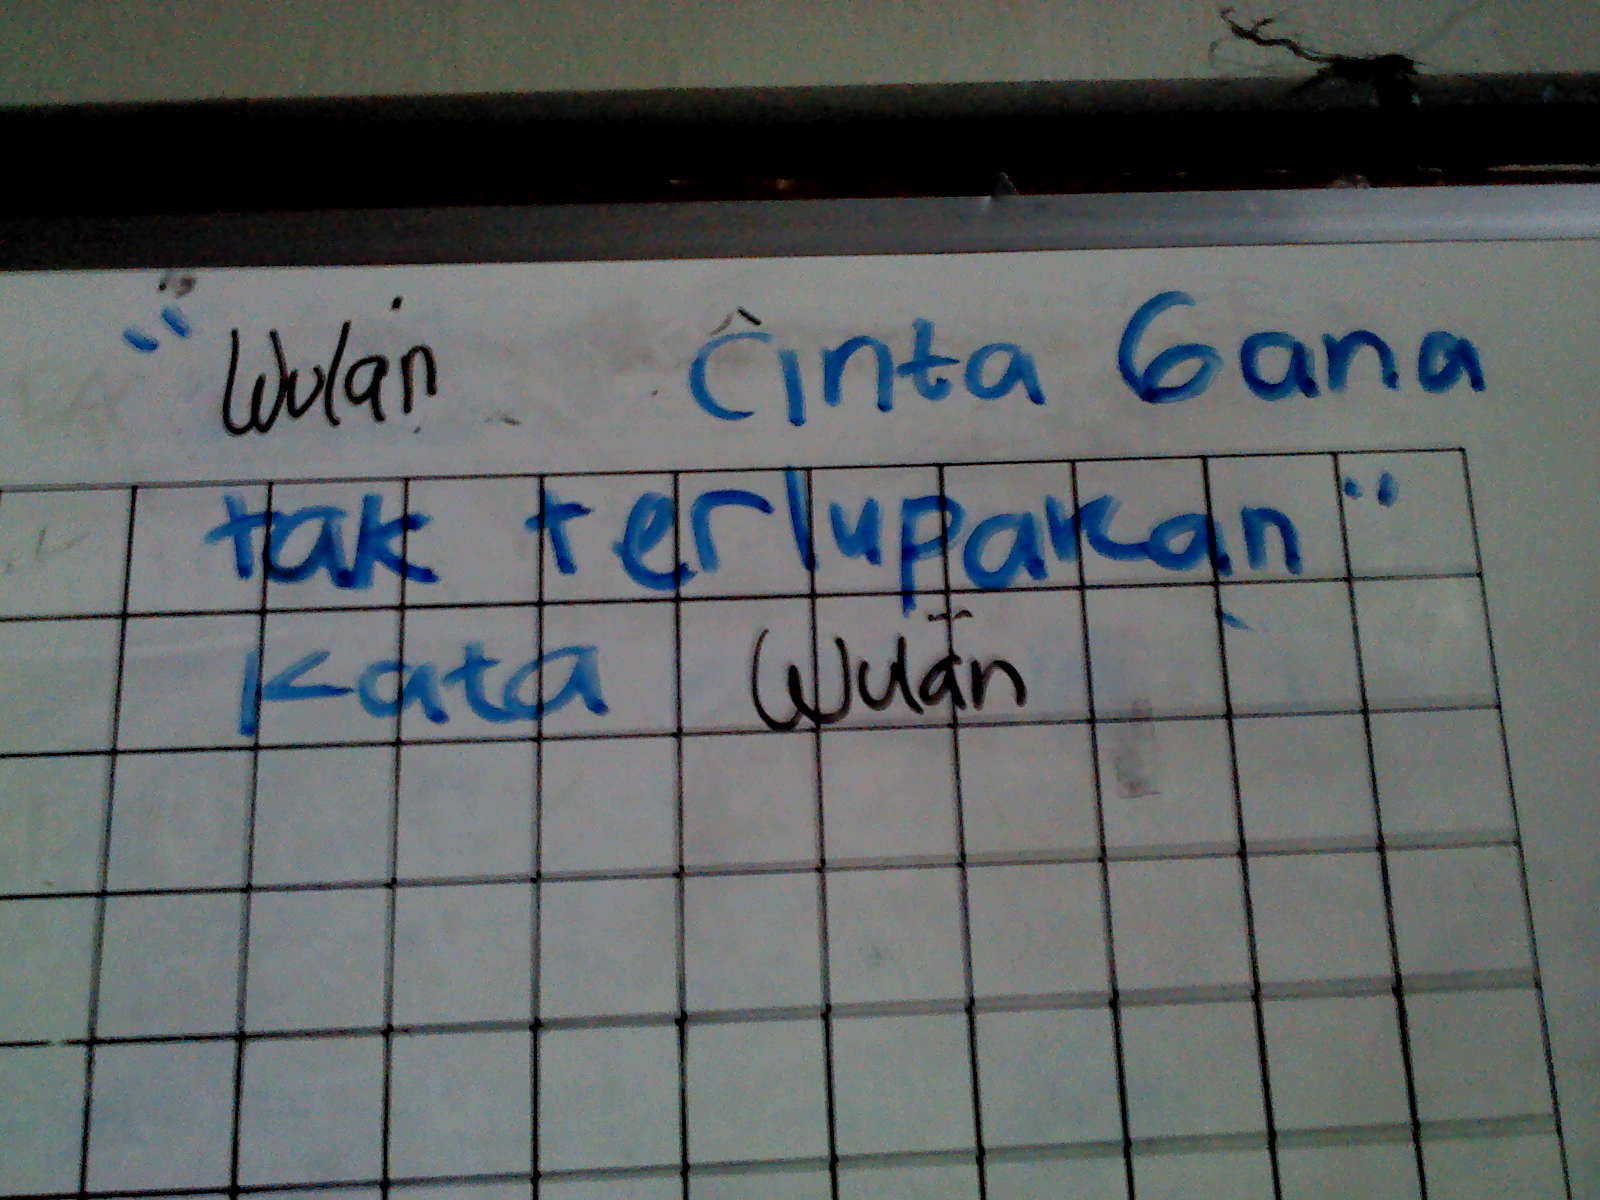 "Wulan Cinta Gana
tak terlupakan"
Kata Wulan